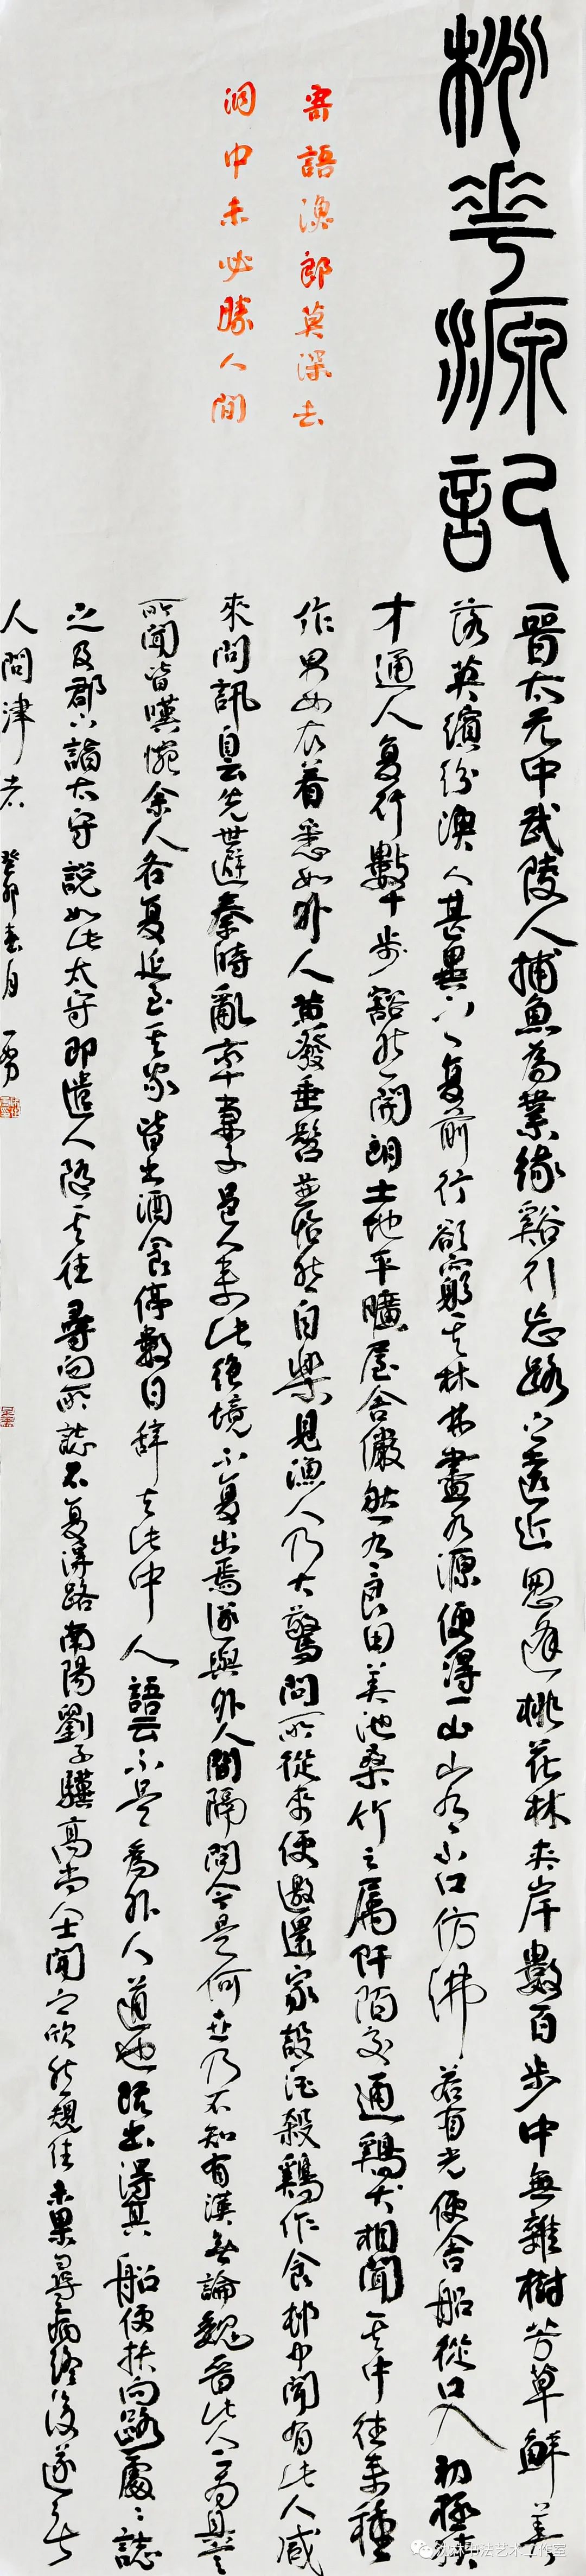 桃花源記
寄語漁郎莫深去
洞中未必勝人間
晉太元中武陵人捕魚為業緣谿行忘路之遠近忽逢桃花林夾岸數百步中無雜樹芳草鮮美
落英繽紛漁人甚異之復前行欲窮其林林盡水源便得一山山有小口仿佛若有光便舍船從口入初極狹
才通人復行數十步豁然開朗土地平曠屋舍儼然有良田美池桑竹之屬阡陌交通鷄犬相聞其中往來種
作男女衣着悉如外人黃發垂髫並怡然自樂見漁人乃大驚問所從來便邀還家設酒殺鷄作食村中聞有此人咸
來問訊自云先世避秦時亂率妻子邑人來此絕境不復出焉遂與外人間隔問今是何世乃不知有漢無論魏晉此人一一為具言
所聞皆嘆惋余人各復延至其家皆出酒食停數日辭去此中人語云不足為外人道也既出得其船便扶向路處處誌
之及郡下詣太守說如此太守即遣人隨其往尋向所誌不復得路南陽劉子驥高尚士聞之欣然規往未果尋病終後遂無
人問津者 癸卯春月 一勇
沈林書法艺术工作室